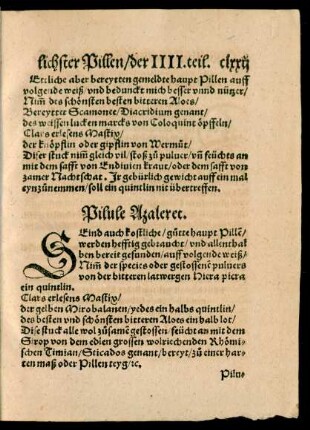 lichster Pillen/der IIII.teil. clxxij
Etzliche aber bereytten gemeldte haupt Pillen auff
volgende weiß/vnd bedunckt mich besser vnnd nützer/
Nim̃ des schönsten besten bitteren Aloes/
Bereytter Scamonee/Diacridium genant/
des weissen lucken marcks von Coloquint öpffeln/
Clars erlesens Mastix/
der knöpflin oder gipfflin von Wermůt/
Diser stuck nim̃ gleich vil/stoß zů puluer/vñ feüchts an
mit dem safft von Endiuien kraut/oder dem safft von
zamer Nachtschat. Ir gebürlich gewicht auff ein mal
eynzůnemmen/soll ein quintlin nit übertreffen.
Pilule Azaleret.
SEind auch kostliche/gůtte haupt Pillẽ/
werden hefftig gebraucht/vnd allenthal
ben bereit gefunden/auff volgende weiß/
Nim̃ der species oder gestossene puluers
von der bitteren latwergen Hiera picra
ein quintlin.
Clars erlesens Mastix/
der gelben Mirobalanen/yedes ein halbs quintlin/
des besten vnd schönsten bitteren Aloes ein halb lot/
Dise stuck alle wol zůsamẽ gestossen/feücht an mit dem
Sirop von dem edlen grossen wolriechenden Rhömi-
schen Timian/Sticados genant/bereyt/zů einer har-
ten maß oder Pillen teyg/ꝛc.
Pilu-